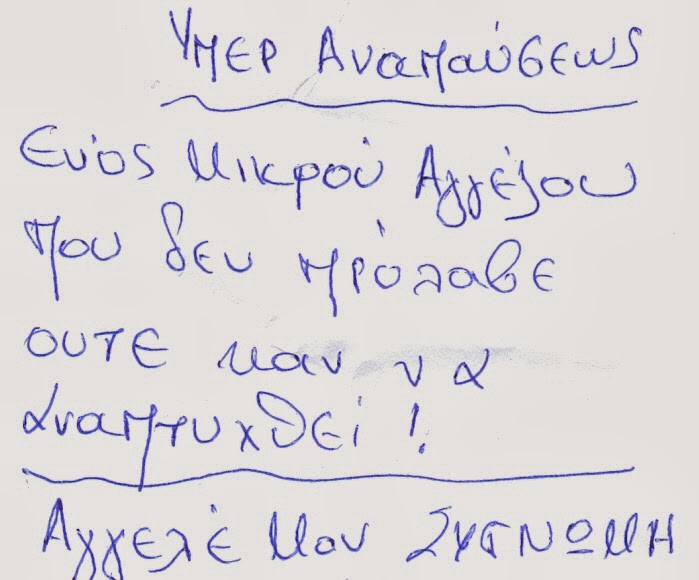 Υπερ Αναπαύσεως
Ενός Μικρού Αγγέλου
που δεν πρόλαβε
ουτε καν να
αναπτυχθεί !.
Αγγελέ μου ΣΥΓΝΩΜΗ